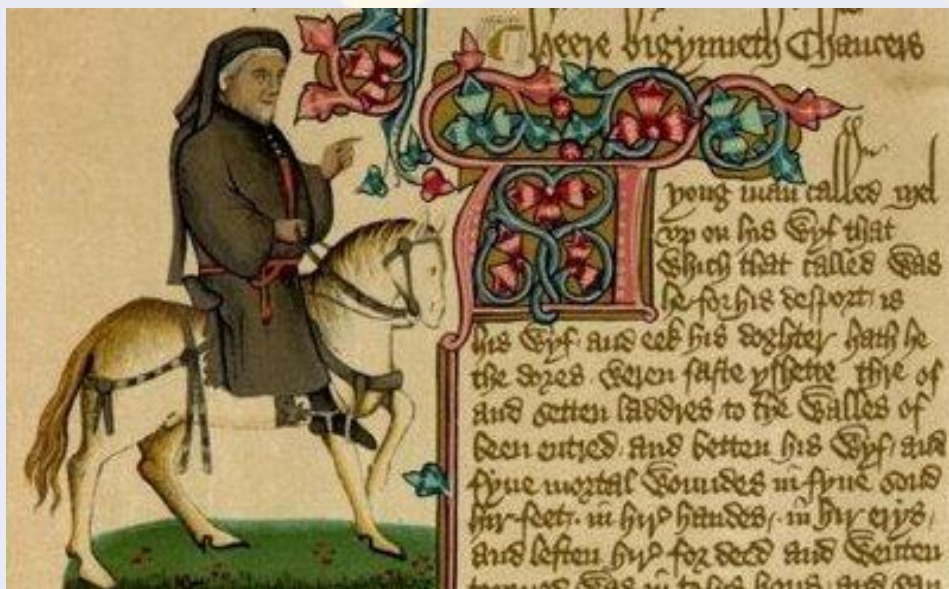 heere bigynneth Chaucers
yong man called Mel
vp on his Wyf that
Which that called Was
he for his desport is
his Wyf and eek his doghter hath he
the dores Weren faste yshette thre of
and setten laddres to the Walles of
been entred and betten his Wyf and
fyue mortal Woundes in fyue sond
hir feet in hir handes in hir erys
and leften hir for deed and Wenten
torned Was in to his hous and